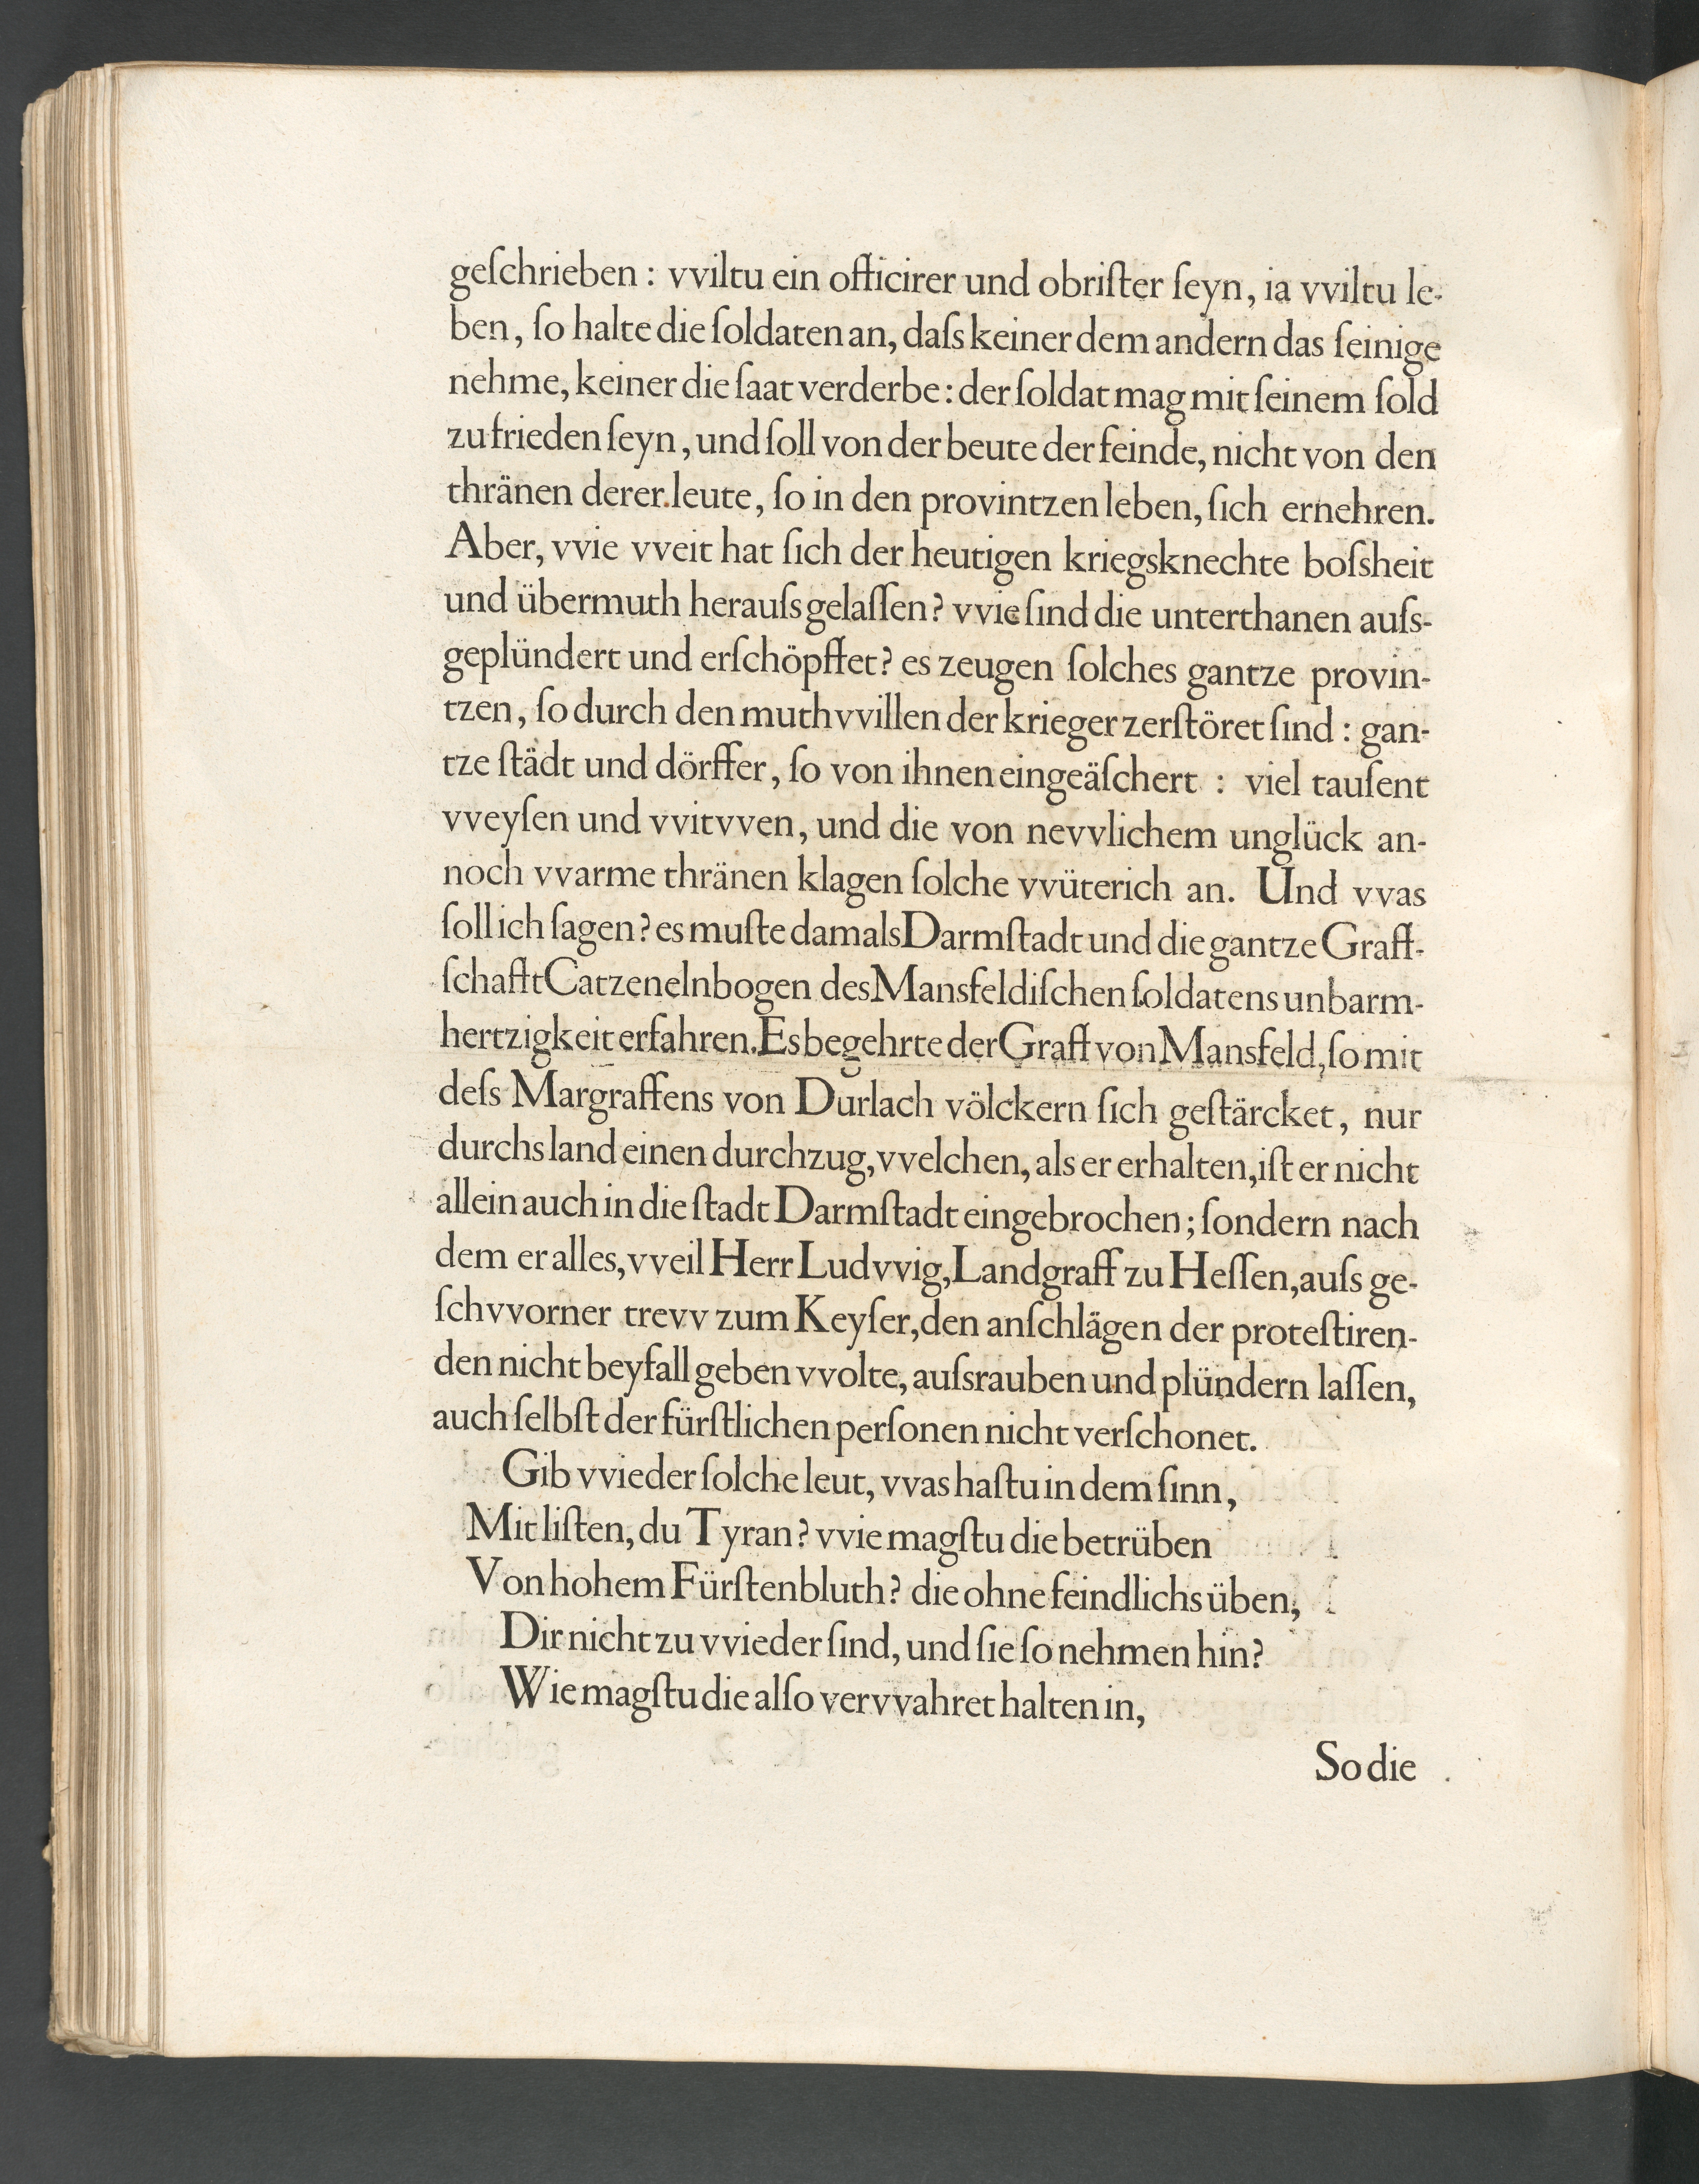 geſchrieben : vviltu ein officirer und obriſter ſeyn, ia vviltu le-
ben, ſo halte die ſoldaten an, daſs keiner dem andern das ſeinige
nehme, keiner die ſaat verderbe : der ſoldat mag mit ſeinem ſold
zu frieden ſeyn, und ſoll von der beute der feinde, nicht von den
thränen derer leute, ſo in den provintzen leben, ſich ernehren.
Aber, vvie vveit hat ſich der heutigen kriegsknechte boſsheit
und übermuth herauſsgelaſſen? vvie ſind die unterthanen auſs-
geplündert und erſchöpffet? es zeugen ſolches gantze provin-
tzen, ſo durch den muthvvillen der krieger zerſtöret ſind : gan-
tze ſtädt und dörffer, ſo von ihnen eingeäſchert : viel tauſent
vveyſen und vvitvven, und die von nevvlichem unglück an-
noch vvarme thränen klagen ſolche vvüterich an. Und vvas
ſoll ich ſagen? es muſte damals Darmſtadt und die gantze Graff-
ſchafft Catzenelnbogen des Mansfeldiſchen ſoldatens unbarm-
hertzigkeit erfahren. Es begehrte der Graff von Mansfeld, ſo mit
deſs Margraffens von Durlach völckern ſich geſtärcket, nur
durchs land einen durchzug, vvelchen, als er erhalten, iſt er nicht
allein auch in die ſtadt Darmſtadt eingebrochen ; ſondern nach
dem er alles, vveil Herr Ludvvig, Landgraff zu Heſſen, auſs ge-
ſchvvorner trevv zum Keyſer, den anſchlägen der proteſtiren-
den nicht beyfall geben vvolte, auſsrauben und plündern laſſen,
auch ſelbſt der fürſtlichen perſonen nicht verſchonet.
Gib vvieder ſolche leut, vvas haſtu in dem ſinn,
Mit liſten, du Tyran? vvie magſtu die betrüben
Von hohem Fürſtenbluth? die ohne feindlichs üben,
Dir nicht zu vvieder ſind, und ſie ſo nehmen hin?
Wie magſtu die alſo vervvahret halten in,
So die